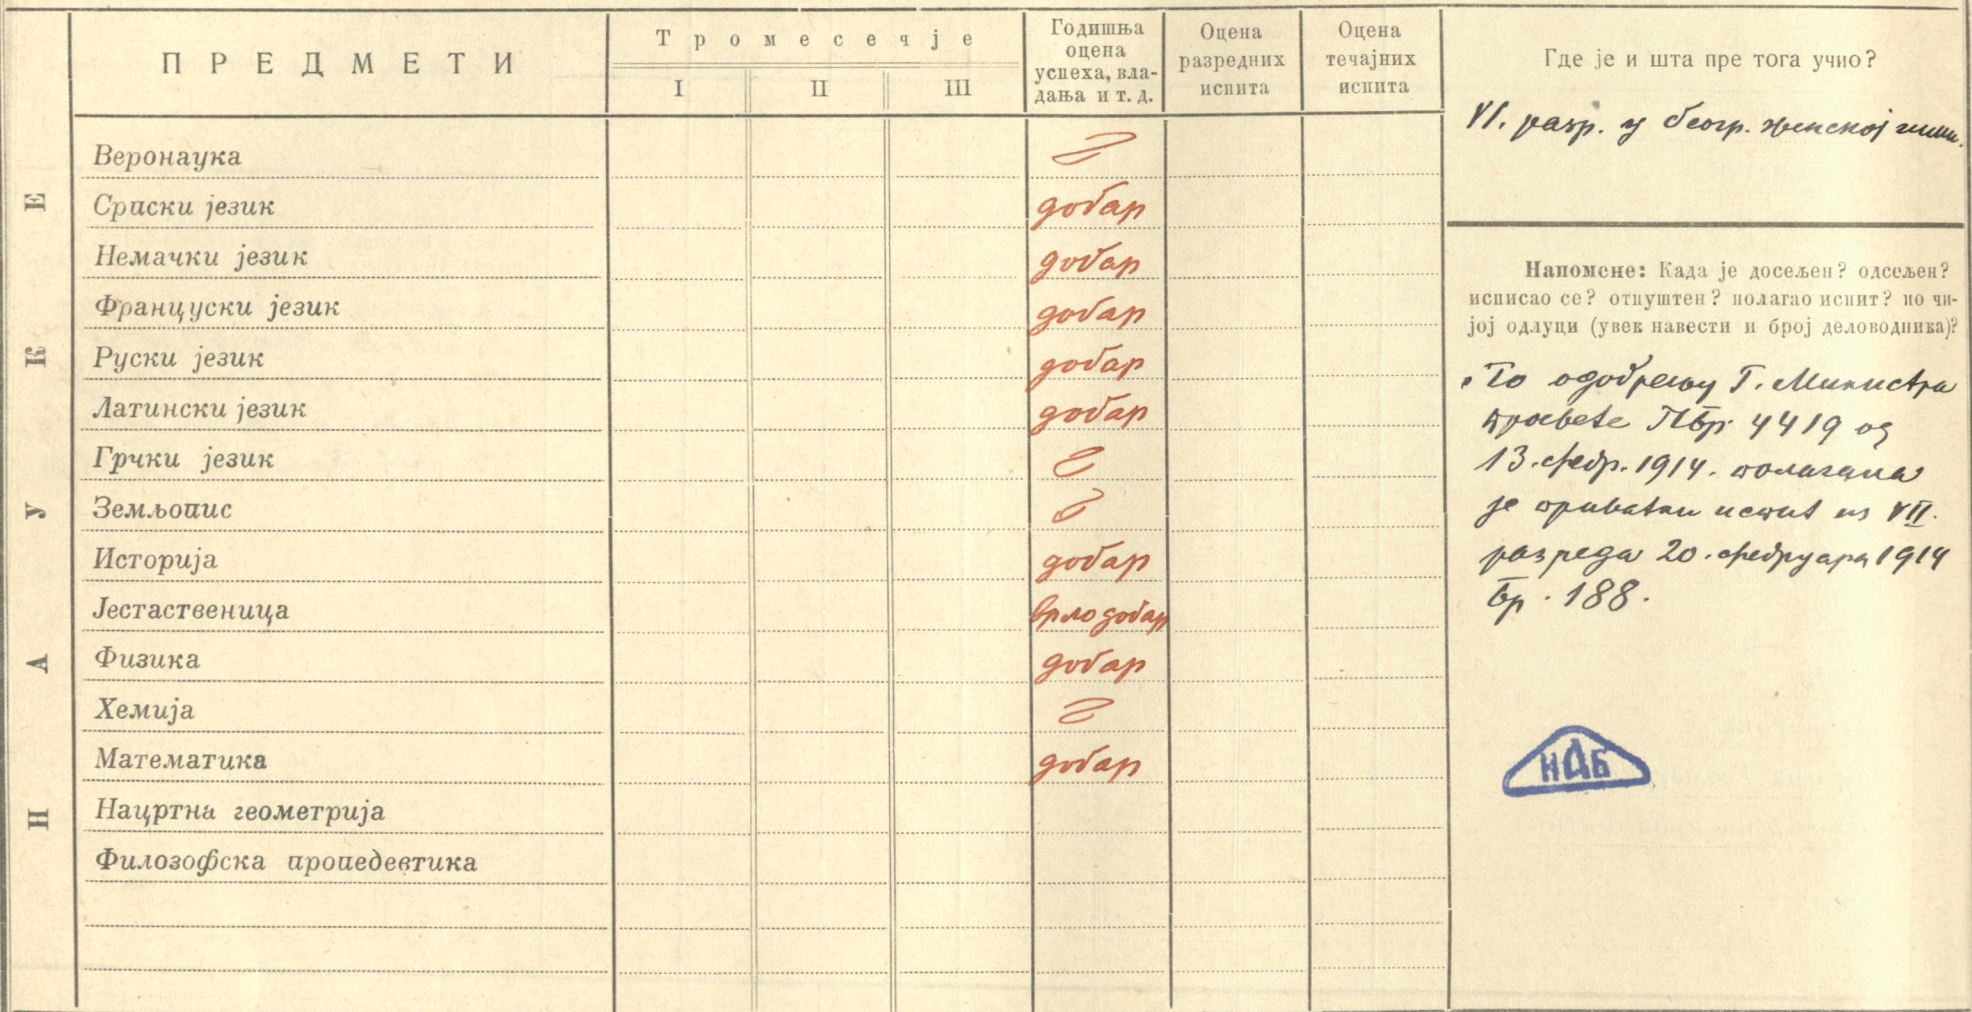 НАУКЕ
ПРЕДМЕТИ
Тромесечје
I II III
Годишња
оцена
успеха, вла-
дања и т. д.
Оцена
разредних
испита
Оцена
течајних
испита
Где је и шта пре тога учио?
VI. разр. у беогр. женској гимн.
Веронаука
Српски језик добар
Немачки језик добар
Француски језик добар
Руски језик добар
Латински језик добар
Грчки језик
Земљопис
Историја добар
Јестаственица врло добар
Физика добар
Хемија
Математика добар
Нацртна геометрија
Филозофска пропедевтика
Напомене: Када је досељен? одсељен?
исписао се? отпуштен? полагао испит? по чи-
јој одлуци (увек навести и број деловодника)?
По одобрењу Г. Министра
просвете ПБр. 4419 од
13. фебр. 1914. полагала
је приватни испит из VII.
разреда 20. фебруара 1914
Бр. 188.
НАБ